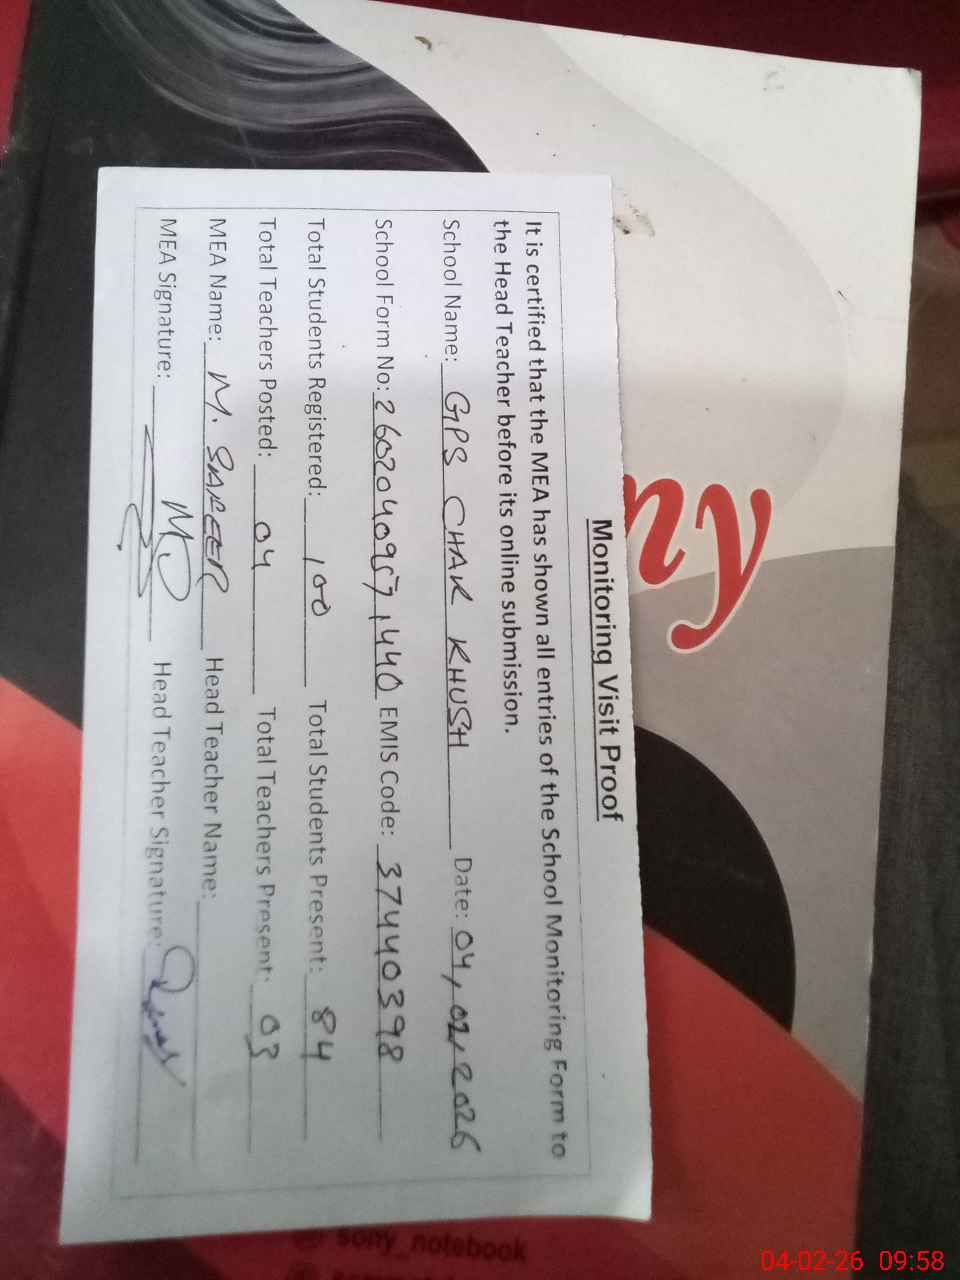 Monitoring Visit Proof
It is certified that the MEA has shown all entries of the School Monitoring Form to
the Head Teacher before its online submission.
School Name: GPS CHAK KHUSH Date: 04, 02, 2026
School Form No: EMIS Code: 37440398
Total Students Registered: 100 Total Students Present: 84
Total Teachers Posted: 04 Total Teachers Present: 03
MEA Name: M. Head Teacher Name:
MEA Signature: Head Teacher Signature:
ny
sony_notebook
04-02-26 09:58